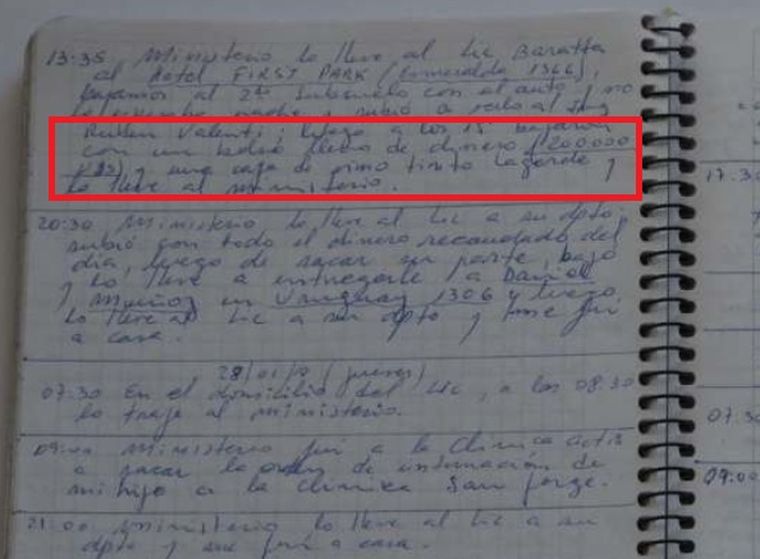 13:35 Ministerio lo lleve al Lic Baratta
al Hotel FIRST PARK (Esmeralda 1366),
bajamos al 2do subsuelo con el auto, no
lo esperaba nadie y subió a verlo al Ing
Ruben Valenti, luego a los 15' bajaron
con un bolso lleno de dinero ($200.000
U$S) y una caja de vino tinto Lagarde y
lo lleve al ministerio.
20:30 Ministerio lo lleve al Lic a su dpto,
subió con todo el dinero recaudado del
día, luego de sacar su parte, bajo
y lo lleve a entregarle a Daniel
Muñoz en Uruguay 1306 y luego
lo lleve al Lic a su dpto y me fui
a casa.
28/01/10 (jueves)
07:30 En el domicilio del Lic, a las 08:30
lo traje al ministerio.
09:00 Ministerio fui a la Clinica
a sacar la orden de internación de
mi hijo a la clinica San Jorge.
21:00 Ministerio lo lleve al Lic a su
dpto y me fui a casa.
17:30
07:30
09:00